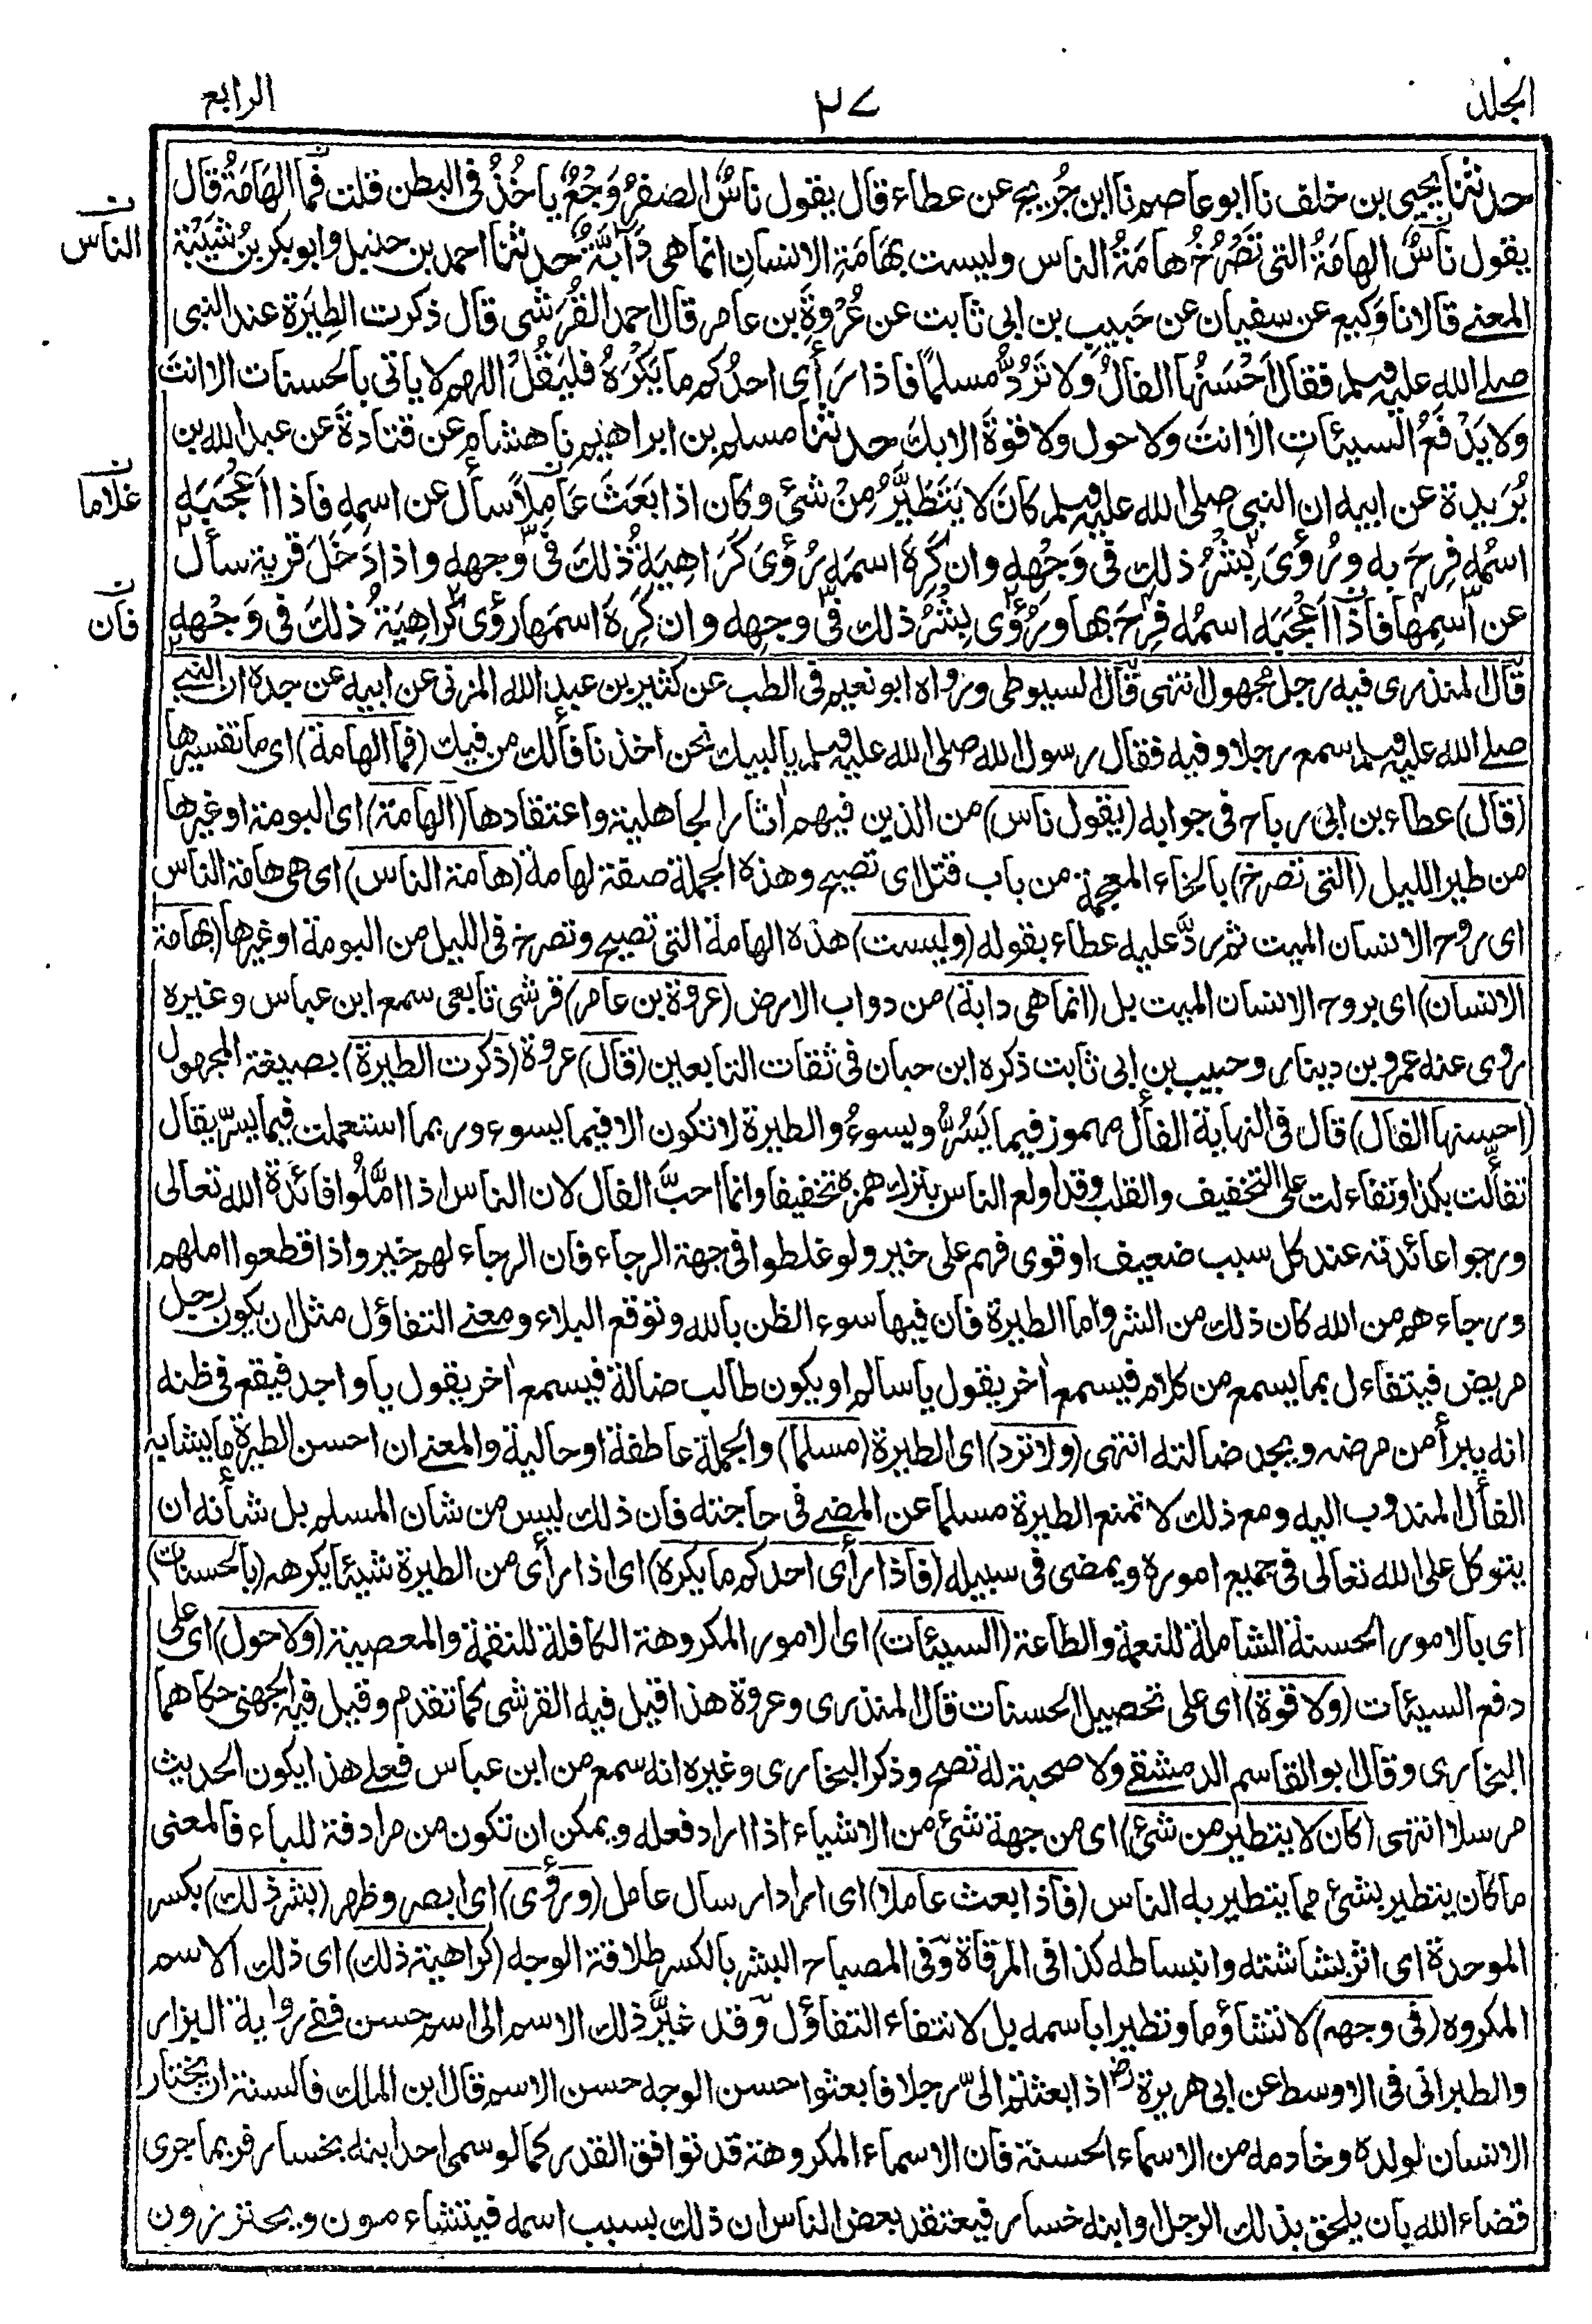 الجلد
٢٧
الرابع
حدثنا يحيى بن خلف نا ابو عاصم نا ابن جُرَيج عن عطاء قال يقول ناسٌ الصفرُ وَجْعٌ ياخُذُ فى البطن قلت فَما الهَامَةُ قال
يقول ناسٌ الهامَةُ التى تَصْرُخُ هامَةُ الناس وليست بهَامَةِ الانسانِ انما هى دَآبَّةٌ حدثنا احمد بن حنبل وابو بكر بنُ شَيْبَة
المعنے قالا نا وَكِيع عن سفيان عن حَبيبِ بن ابى ثابت عن عُرْوَةَ بن عامر قال احمد القُرَشى قال ذكرت الطِيَرَة عند النبى
صلے الله عليه وسلم فقال اَحْسَنُها الفالُ وَلا تَرُدُّ مسلمًا فاذا رَأى احدُكم ما يَكْرَهُ فليَقُلْ اللهم لا ياتى بالحسنات الا انتَ
ولا يَدْفَعُ السيئاتِ الا انتَ ولا حول ولا قوةَ الا بك حدثنا مسلم بن ابراهيم نا هشام عن قتادةَ عن عبد الله بن
بُرَيدة عن ابيه ان النبى صلى الله عليه وسلم كانَ لا يَتَطَيَّرُ مِنْ شئ وكان اذا بَعَثَ عَامِلاً سأل عن اسمِهِ فاذا اَعْجَبَه
اسْمُه فرِحَ به ورُؤىَ بِشْرُ ذلك فى وَجْهِه وان كَرِهَ اسمَه رُؤىَ كَرَاهِيَةُ ذلكَ فى وجهه واذا دَخَلَ قرية سأل
عن اسمِها فاذا اَعْجَبَه اسمُه فَرِحَ بها ورُؤىَ بِشْرُ ذلك فى وجهه وان كَرِهَ اسمَها رؤى كَرَاهِيَةُ ذلكَ فى وَجْهه
الناس
غلاما
فان
قال المنذرى فيه رجل مجهول انتهى قال السيوطى ورواه ابو نعيم فى الطب عن كثير بن عبد الله المزنى عن ابيه عن جده ان النبے
صلے الله عليه وسلم سمع رجلا وفيه فقال رسول الله صلى الله عليه وسلم يا لبيك نحن اخذنا فألك من فيك (فما الهامة) اى ما تفسيرها
(قال) عطاء بن ابى رباح فى جوابه (يقول ناس) من الذين فيهم اٰثار الجاهلية واعتقادها (الهامة) اى البومة او غيرها
من طير الليل (التى تصرخ) بالخاء المعجمة من باب قتل اى تصيح وهذه الجملة صفة لهامة (هامة الناس) اى هى هامة الناس
اى روح الانسان الميت ثم ردَّ عليه عطاء بقوله (وليست) هذه الهامة التى تصيح وتصرخ فى الليل من البومة او غيرها (بهامة
الانسان) اى بروح الانسان الميت بل (انما هى دابة) من دواب الارض (عروة بن عامر) قرشى تابعى سمع ابن عباس وغيره
روى عنه عمرو بن دينار وحبيب بن ابى ثابت ذكره ابن حبان فى ثقات التابعين (قال) عروة (ذكرت الطيرة) بصيغة المجهول
(احسنها الفال) قال فى النهاية الفأل مهموز فيما يَسُرُّ ويسوءُ والطيرة لا تكون الا فيما يسوء وربما استعملت فيما يسرّ يقال
تفألت بكذا وتفاءلت على التخفيف والقلب وقد اولع الناس بترك همزه تخفيفا وانما احبَّ الفال لان الناس اذا امَّلُوا فائدة الله تعالى
ورجوا عائدته عند كل سبب ضعيف او قوى فهم على خير ولو غلطوا فى جهة الرجاء فان الرجاء لهم خير واذا قطعوا املهم
ورجاءهم من الله كان ذلك من الشر واما الطيرة فان فيها سوء الظن بالله وتوقع البلاء ومعنے التفاؤل مثل ان يكون رجل
مريض فيتفاءل بما يسمع من كلام فيسمع اٰخر يقول يا سالم او يكون طالب ضالة فيسمع اٰخر يقول يا واجد فيقع فى ظنه
انه يبرأ من مرضه ويجد ضالته انتهى (ولا ترد) اى الطيرة (مسلما) والجملة عاطفة او حالية والمعنے ان احسن الطيرة ما يشابه
الفأل المندوب اليه ومع ذلك لا تمنع الطيرة مسلما عن المضے فى حاجته فان ذلك ليس من شان المسلم بل شأنه ان
يتوكل على الله تعالى فى جميع اموره ويمضى فى سبيله (فاذا رأى احدكم ما يكره) اى اذا رأى من الطيرة شيئا يكرهه (بالحسنات)
اى بالامور الحسنة الشاملة للنعمة والطاعة (السيئات) اى الامور المكروهة الكافلة للنقمة والمعصية (ولا حول) اى على
دفع السيئات (ولا قوة) اى على تحصيل الحسنات قال المنذرى وعروة هذا قيل فيه القرشى كما تقدم وقيل فيه الجهنى حكاهما
البخارى وقال ابو القاسم الدمشقے ولا صحبة له تصح وذكر البخارى وغيره انه سمع من ابن عباس فعلے هذا يكون الحديث
مرسلا انتهى (كان لا يتطير من شئ) اى من جهة شئ من الاشياء اذا اراد فعله ويمكن ان تكون من مرادفة للباء فالمعنى
ما كان يتطير بشئ مما يتطير به الناس (فاذا بعث عاملا) اى اراد ارسال عامل (ورؤى) اى ابصر وظهر (بشر ذلك) بكسر
الموحدة اى اثر بشاشته وانبساطه كذا فى المرقاة وفى المصباح البشر بالكسر طلاقة الوجه (كراهية ذلك) اى ذلك الاسم
المكروه (فى وجهه) لا تشاؤما وتطيرا باسمه بل لانتفاء التفاؤل وقد غيَّر ذلك الاسم الى اسم حسن ففے رواية البزار
والطبرانى فى الاوسط عن ابى هريرة رض اذا بعثتم الىّ رجلا فابعثوا حسن الوجه حسن الاسم قال ابن الملك فالسنة ان يختار
الانسان لولده وخادمه من الاسماء الحسنة فان الاسماء المكروهة قد توافق القدر كما لو سمى احد ابنه بخسار فربما جرى
قضاء الله بان يلحق بذلك الرجل او ابنه خسار فيعتقد بعض الناس ان ذلك بسبب اسمه فيتشاءمون ويحترزون